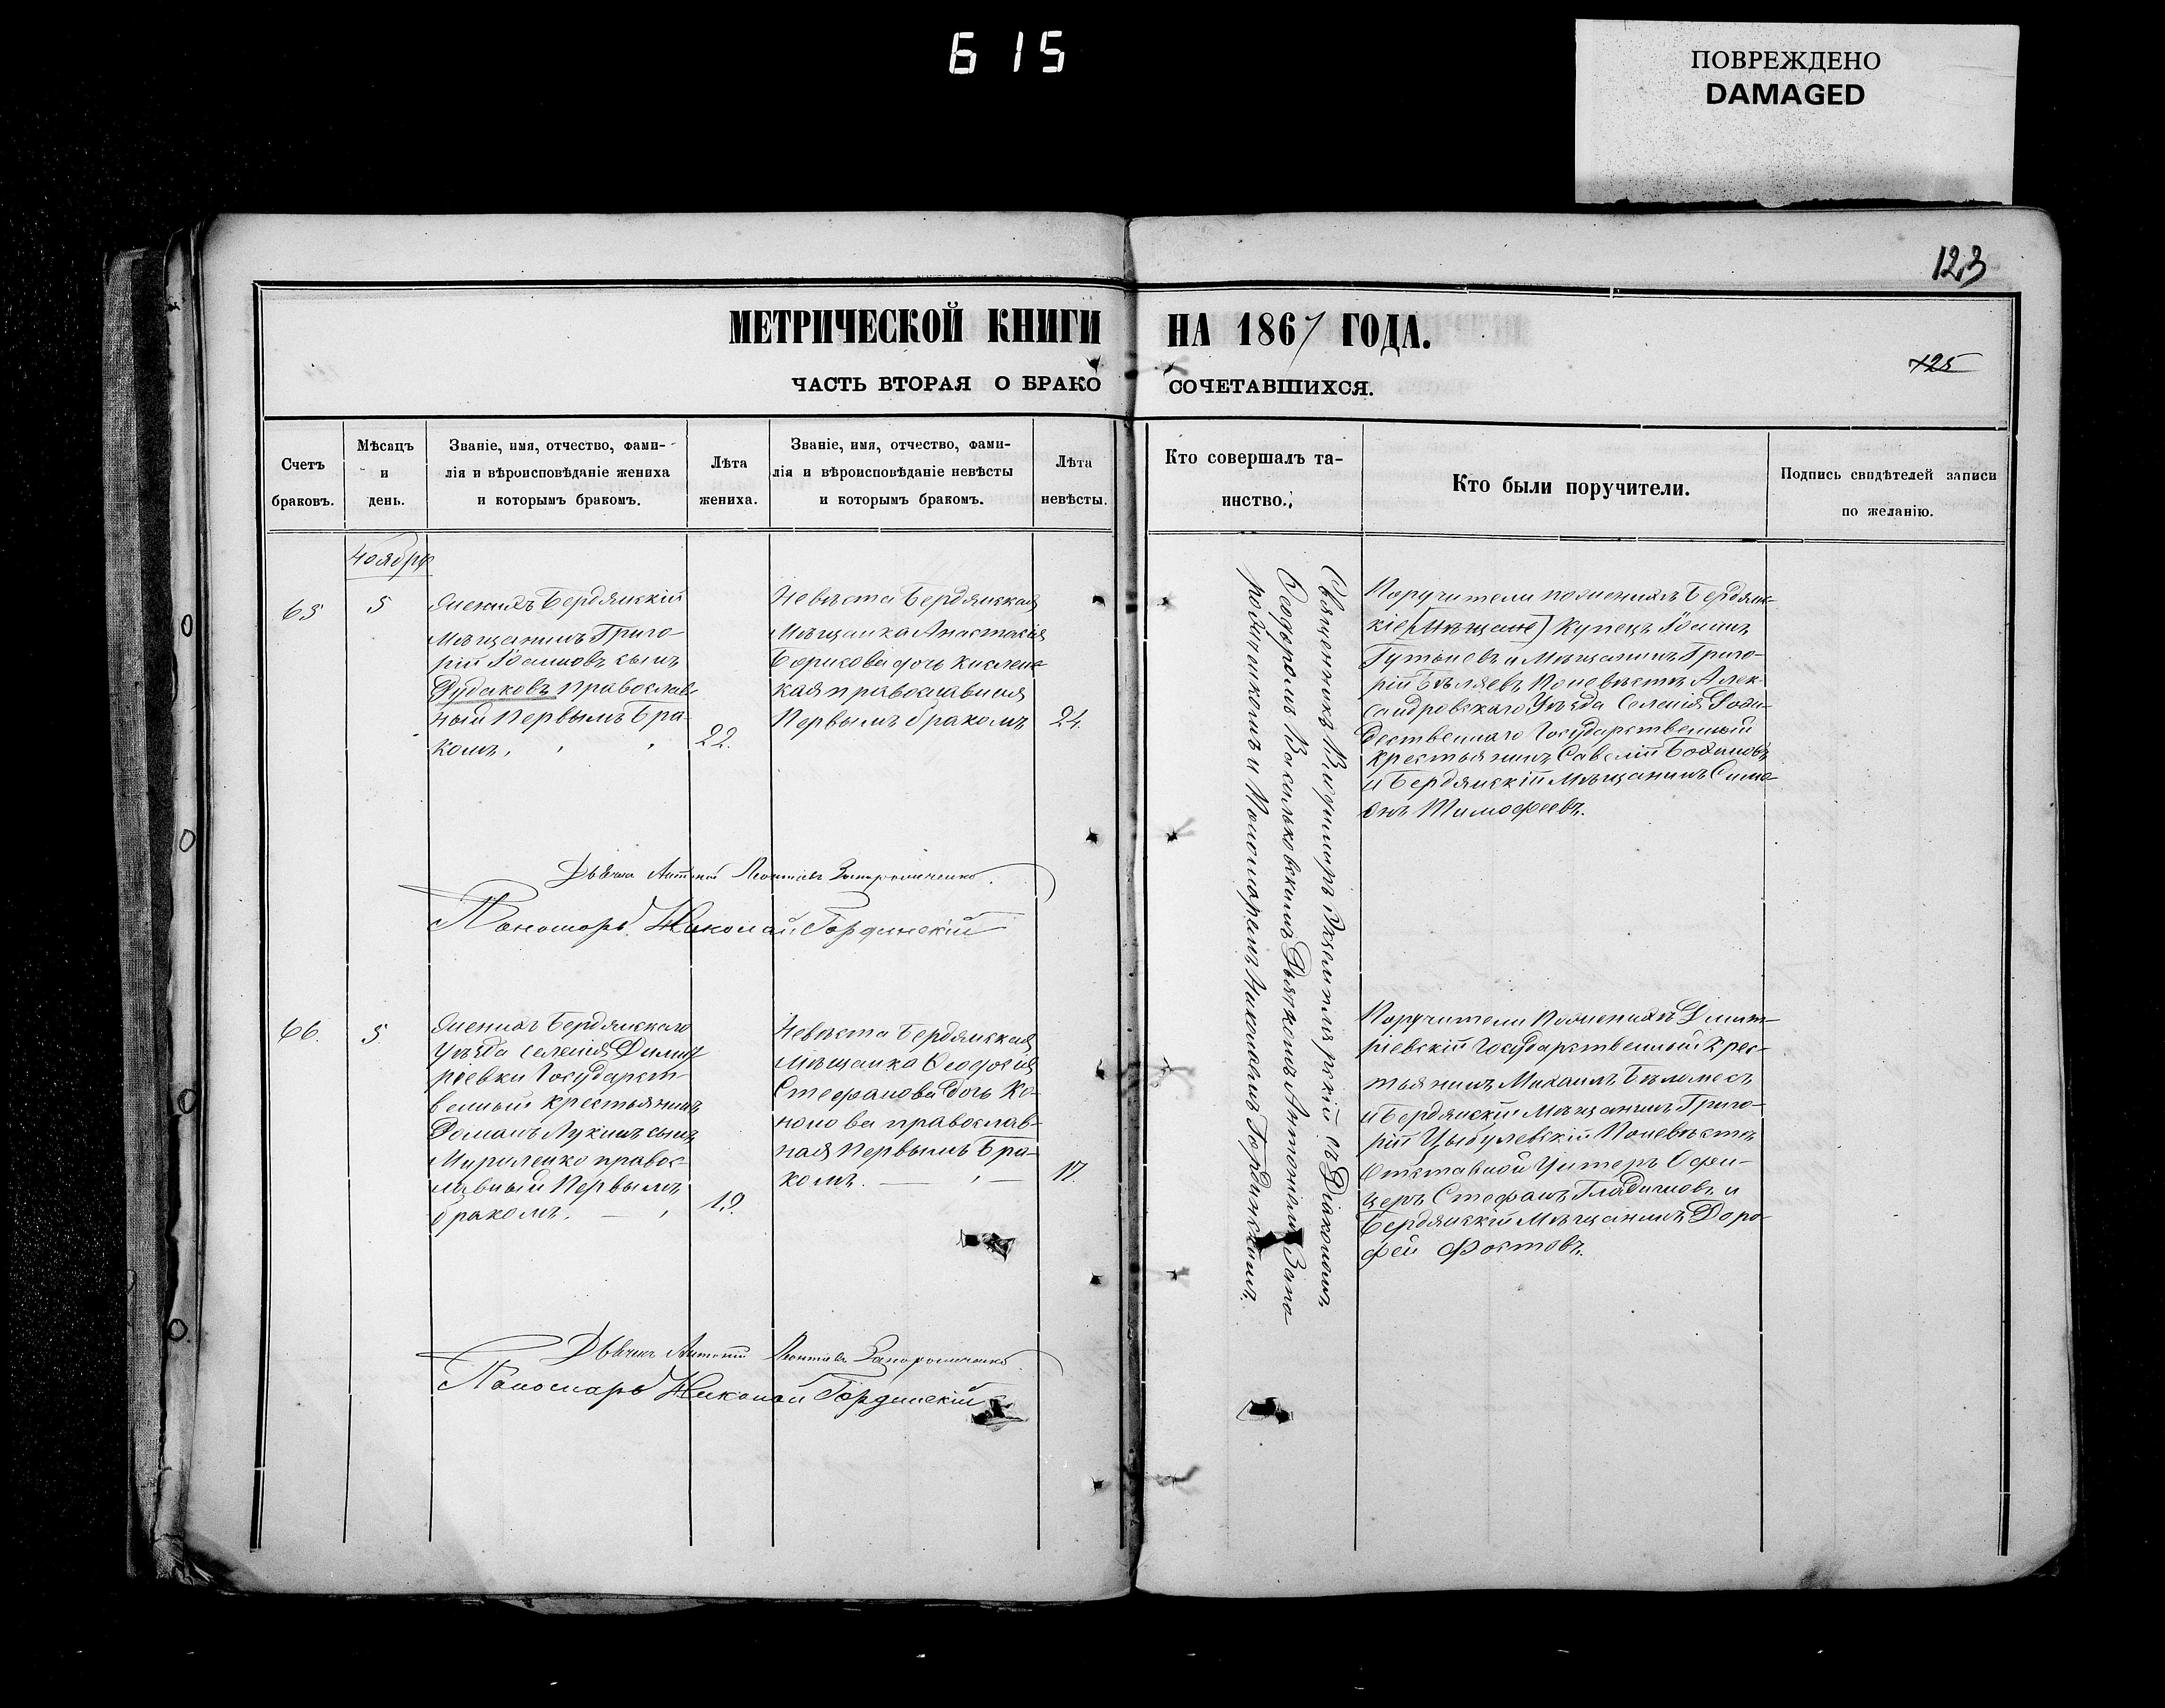 615
ПОВРЕЖДЕНО
DAMAGED
123
МЕТРИЧЕСКОЙ КНИГИ НА 1867 ГОДА.
125
ЧАСТЬ ВТОРАЯ О БРАКОСОЧЕТАВШИХСЯ.
Счетъ
браковъ.
Мѣсяцъ
и
день.
Званіе, имя, отчество, фами-
лія и вѣроисповѣданіе жениха
и которымъ бракомъ.
Лѣта
жениха.
Званіе, имя, отчество, фами-
лія и вѣроисповѣданіе невѣсты
и которымъ бракомъ.
Лѣта
невѣсты.
Кто совершалъ та-
инство.
Кто были поручители.
Подпись свидѣтелей записи
по желанію.
Ноября
65
5
Женихъ Бердянскій
Мѣщанинъ Григо-
рій Іоанновъ сынъ
Дудаковъ православ-
ный Первымъ Бра-
комъ.
22.
Невѣста Бердянская
Мѣщанка Анастасія
Борисова дочь
кая православная
Первымъ бракомъ
24.
Священникъ Владиміръ Экземплярскій съ Діакономъ
Ѳеодоромъ Васильковскимъ Дьячкомъ Антоніемъ Запо
рожченкомъ и Пономаремъ Николаемъ Гординскимъ.
Поручители по женихѣ Бердянс-
кіе [Мѣщане] Купецъ Іоаннъ
и Мѣщанинъ Григо-
рій Бѣляевъ По невѣстѣ Алек-
сандровскаго Уѣзда Селенія Рожде-
дественскаго Государственный
крестьянинъ Савелій
и Бердянскій Мѣщанинъ Симе
онъ Тимофеевъ.
Дьячекъ Антоній Леонтіевъ Запорожченко.
Пономарь Николай Гординскій
66.
5
Женихъ Бердянскаго
Уѣзда селенія Димит
ріевки Государст-
венный крестьянинъ
Романъ Лукинъ сынъ
Мироленко правос-
лавный Первымъ
бракомъ.
19.
Невѣста Бердянская
Мѣщанка Ѳеодосія
Стефанова дочь Ко-
нонова православ-
ная Первымъ Бра-
комъ.
17.
Поручители По женихѣ Димит-
ріевскій Государственный крес-
тьянинъ Михаилъ
и Бердянскій Мѣщанинъ Григо-
рій Цыбулевскій По невѣстѣ
Отставной Унтеръ Офи-
церъ Стефанъ Гладичковъ и
Бердянскій Мѣщанинъ Доро-
фей Фостовъ.
Дьячекъ Антоній Леонтіевъ Запорожченко
Пономарь Николай Гординскій